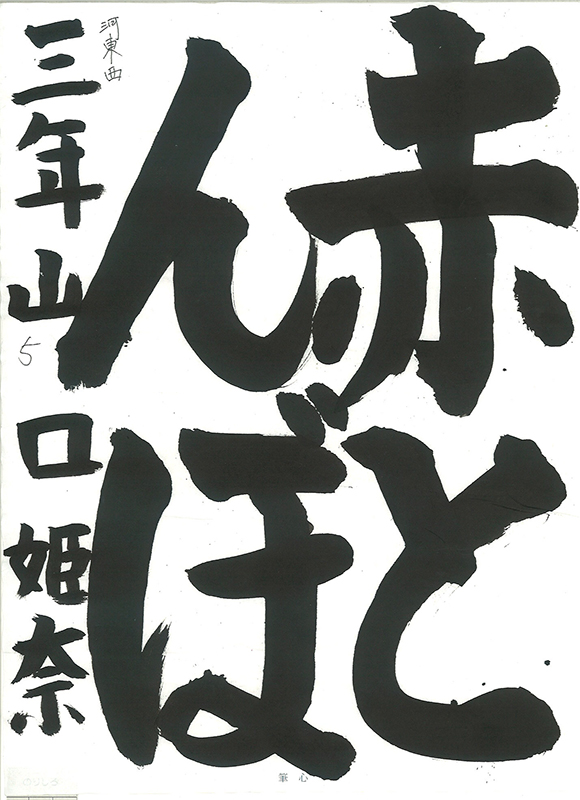 赤と
んぼ
河東西
三年山口姫奈
5
筆心
のりしろ